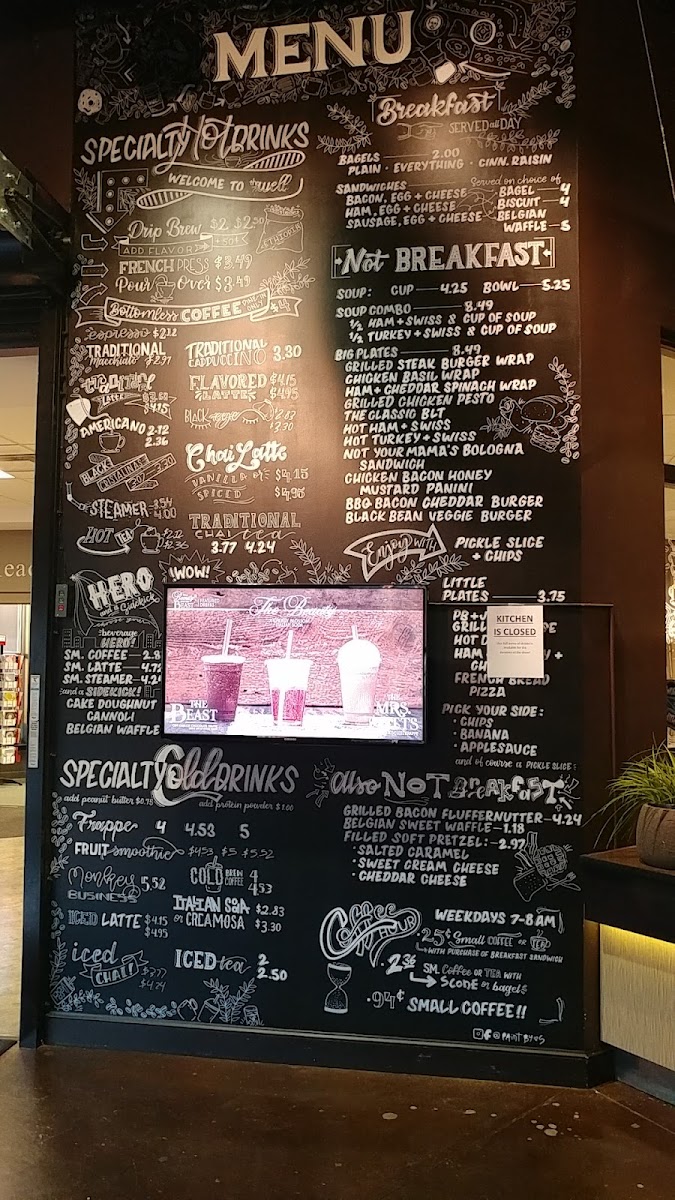 MENU
SPECIALTY Hot DRINKS
WELCOME TO thewell
Drip Brew $2 $2.50
ADD FLAVOR +50¢
FRENCH PRESS $3.49
Pour Over $3.49
Bottomless COFFEE DINE-IN ONLY $4
espresso $2.12
TRADITIONAL
Macchiato $2.97
TRADITIONAL
CAPPUCCINO 3.30
LATTE
$4.15
FLAVORED $4.15
LATTE $4.95
AMERICANO 2.12
2.36
BLACK eye $2.83
$3.30
BLACK
Chai Latte
VANILLA or $4.15
SPICED $4.95
STEAMER 3.54
4.00
TRADITIONAL
CHAI tea
3.77 4.24
HOT TEA $2.12
$2.36
HERO
and a Sidekick
!WOW!
beverage
HERO!
SM. COFFEE
SM. LATTE 4.75
SM. STEAMER
and a SIDEKICK!
CAKE DOUGHNUT
CANNOLI
BELGIAN WAFFLE
The Beauty
THE
BEAST
THE
MRS.
SPECIALTY Cold DRINKS
add peanut butter $0.75
add protein powder $1.00
Frappe 4 4.53 5
FRUIT smoothie $4.53 $5 $5.52
Monkey
BUSINESS 5.52
COLD BREW
COFFEE 4
4.53
ICED LATTE $4.15
$4.95
ITALIAN SODA $2.83
or CREAMOSA $3.30
iced
CHAI $3.77
$4.24
ICED tea 2
2.50
Breakfast
SERVED all DAY
BAGELS 2.00
PLAIN · EVERYTHING · CINN. RAISIN
SANDWICHES Served on choice of
BACON, EGG + CHEESE BAGEL 4
HAM, EGG + CHEESE BISCUIT 4
SAUSAGE, EGG + CHEESE BELGIAN
WAFFLE 5
Not BREAKFAST
SOUP: CUP 4.25 BOWL 5.25
SOUP COMBO 8.49
½ HAM + SWISS & CUP OF SOUP
½ TURKEY + SWISS & CUP OF SOUP
BIG PLATES 8.49
GRILLED STEAK BURGER WRAP
CHICKEN BASIL WRAP
HAM + CHEDDAR SPINACH WRAP
GRILLED CHICKEN PESTO
THE CLASSIC BLT
HOT HAM + SWISS
HOT TURKEY + SWISS
NOT YOUR MAMA'S BOLOGNA
SANDWICH
CHICKEN BACON HONEY
MUSTARD PANINI
BBQ BACON CHEDDAR BURGER
BLACK BEAN VEGGIE BURGER
Enjoy WITH PICKLE SLICE
+ CHIPS
LITTLE
PLATES 3.75
PB +
GRILL
HOT D
HAM
CH
FRENCH BREAD
PIZZA
KITCHEN
IS CLOSED
PICK YOUR SIDE:
· CHIPS
· BANANA
· APPLESAUCE
and of course a PICKLE SLICE!
also NOT BREAKFAST
GRILLED BACON FLUFFERNUTTER 4.24
BELGIAN SWEET WAFFLE 1.18
FILLED SOFT PRETZEL: 2.97
· SALTED CARAMEL
· SWEET CREAM CHEESE
· CHEDDAR CHEESE
WEEKDAYS 7-8 AM
· 25¢ Small COFFEE or TEA
WITH PURCHASE OF BREAKFAST SANDWICH
· 2.36 SM. Coffee or TEA WITH
SCONE or bagel
· 94¢ SMALL COFFEE!!
@PAINTBYOS